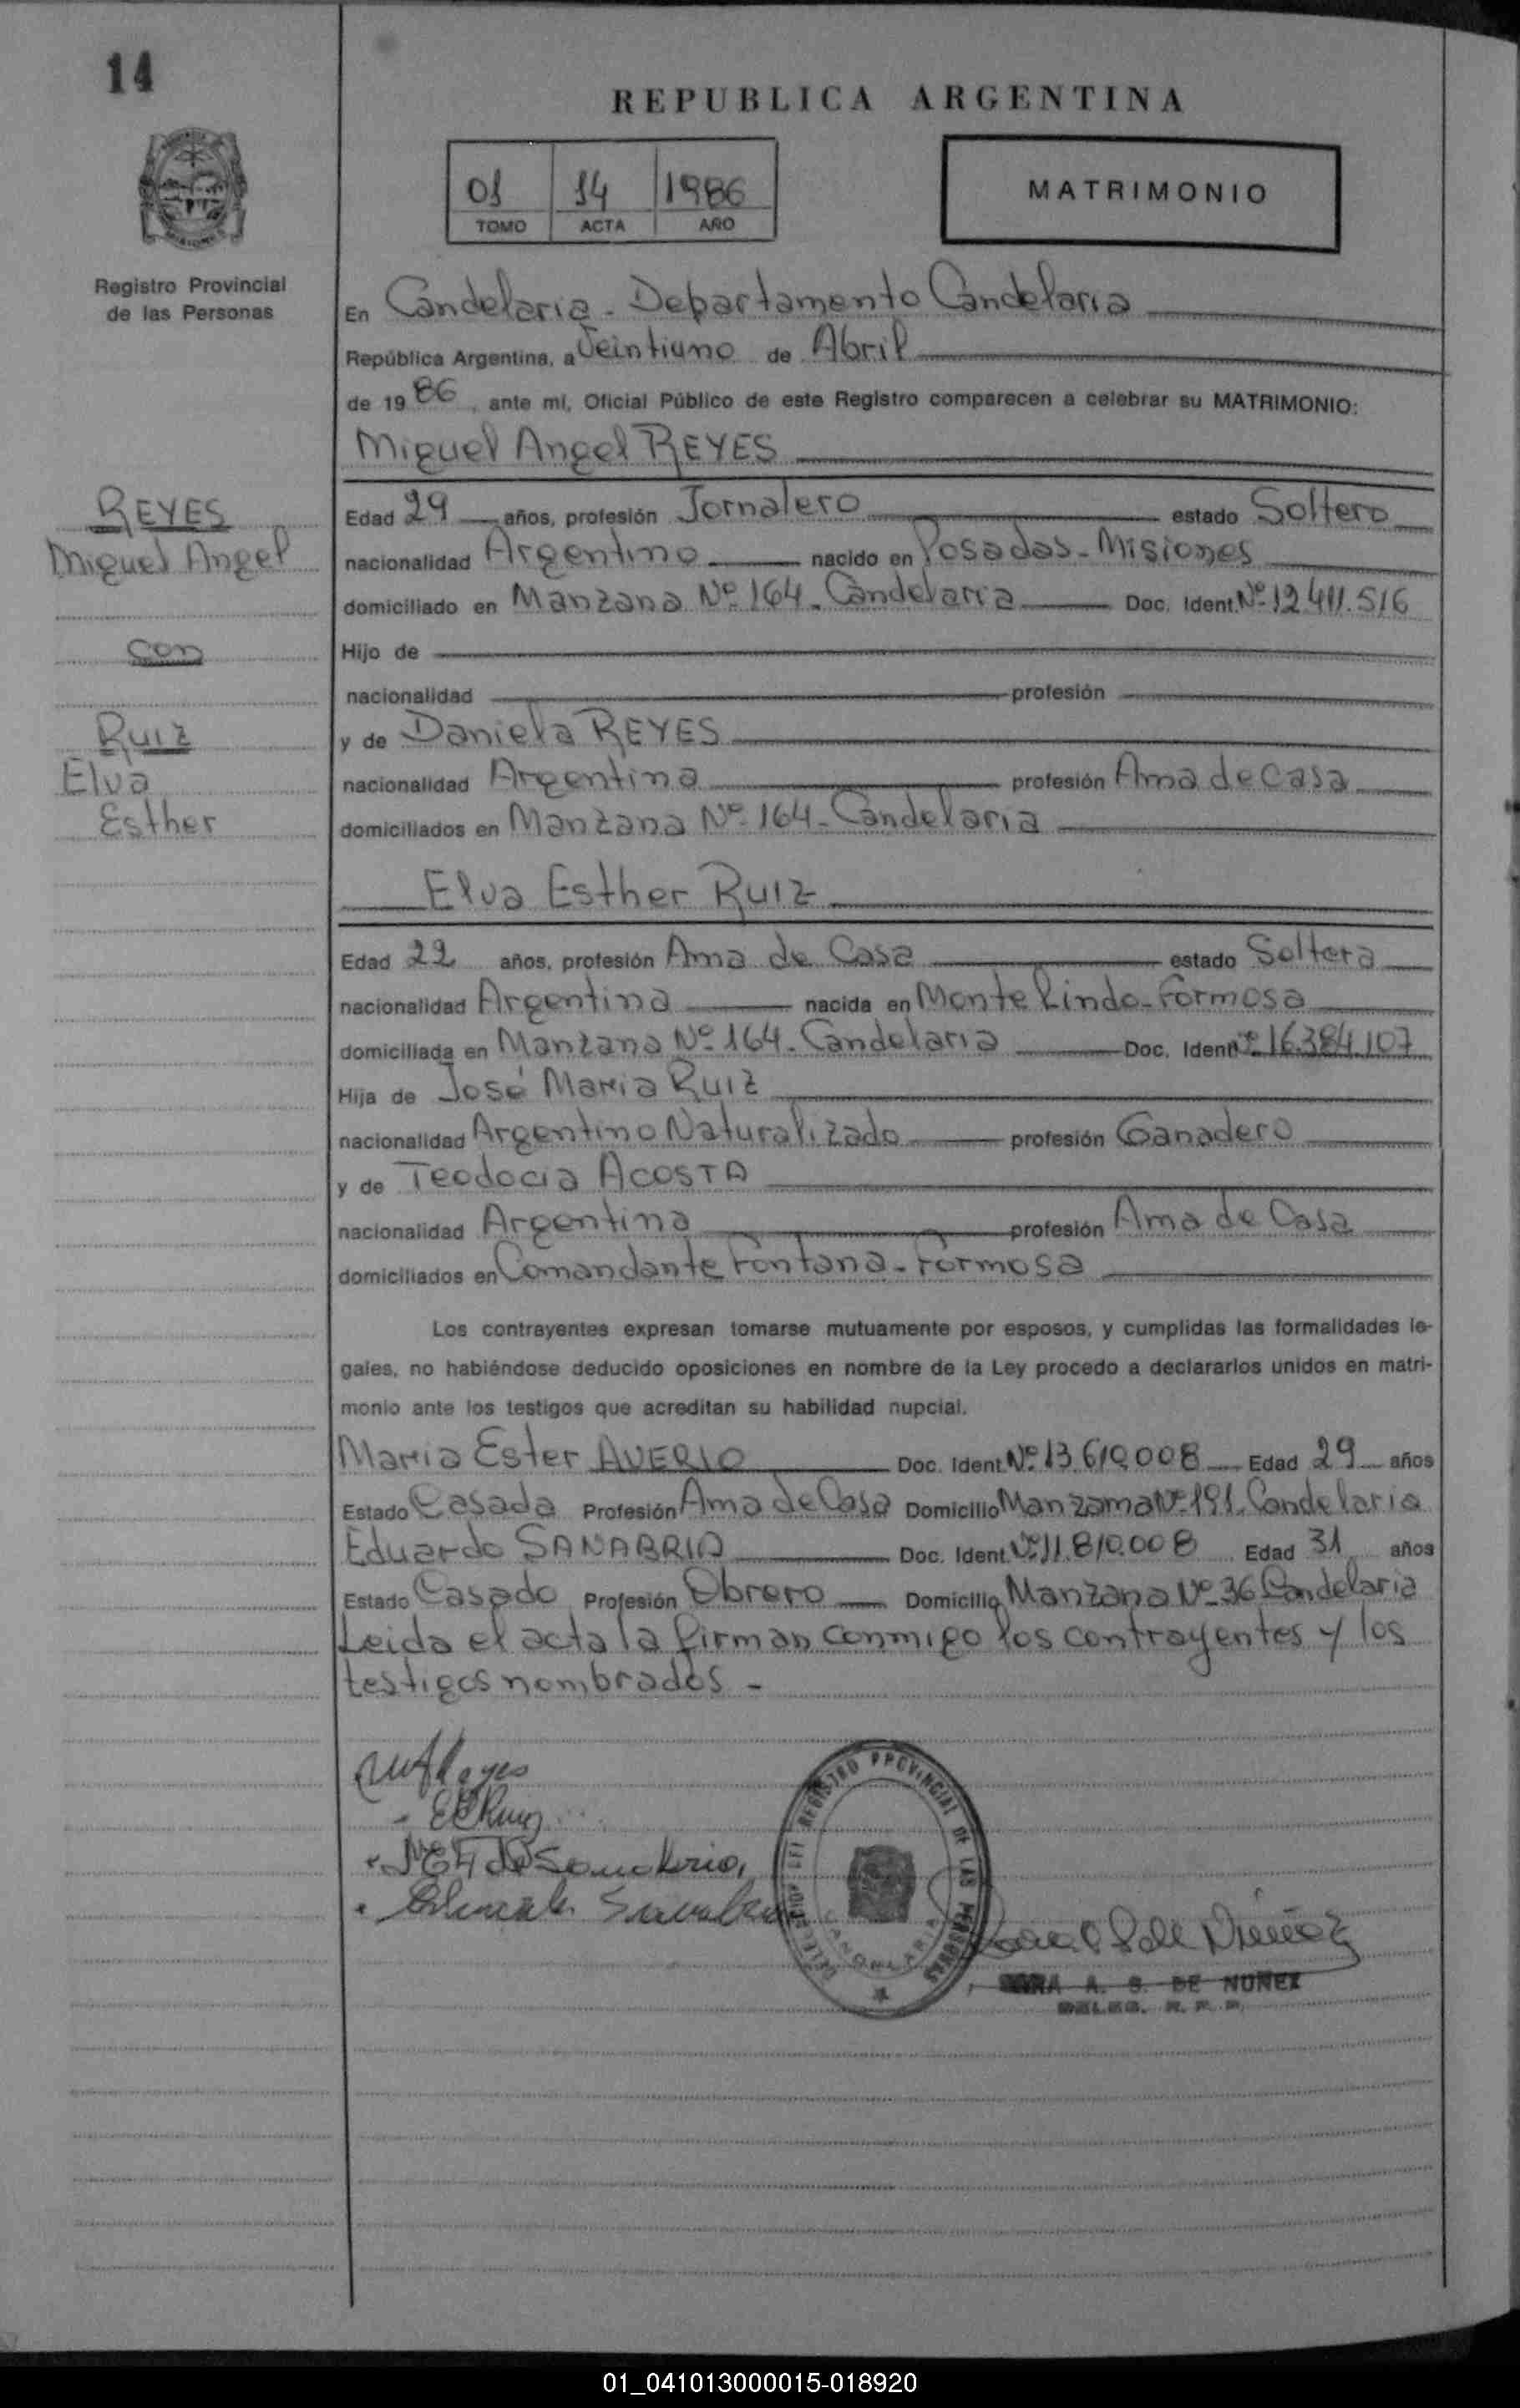 14
REPUBLICA ARGENTINA
01 14 1986
TOMO ACTA AÑO
MATRIMONIO
Registro Provincial
de las Personas
En Candelaria - Departamento Candelaria
República Argentina, a Veintiuno de Abril
de 19 86, ante mí, Oficial Público de este Registro comparecen a celebrar su MATRIMONIO:
Miguel Angel REYES
REYES
Miguel Angel
con
Ruiz
Elva
Esther
Edad 29 años, profesión Jornalero estado Soltero
nacionalidad Argentino nacido en Posadas - Misiones
domiciliado en Manzana Nº 164 - Candelaria Doc. Ident. Nº 12.411.516
Hijo de
nacionalidad profesión
y de Daniela REYES
nacionalidad Argentina profesión Ama de casa
domiciliados en Manzana Nº 164 - Candelaria
Elva Esther Ruiz
Edad 22 años, profesión Ama de Casa estado Soltera
nacionalidad Argentina nacida en Monte Lindo - Formosa
domiciliada en Manzana Nº 164 - Candelaria Doc. Ident Nº 16.384.107
Hija de José Maria Ruiz
nacionalidad Argentino Naturalizado profesión Ganadero
y de Teodocia ACOSTA
nacionalidad Argentina profesión Ama de Casa
domiciliados en Comandante Fontana - Formosa
Los contrayentes expresan tomarse mutuamente por esposos, y cumplidas las formalidades le-
gales, no habiéndose deducido oposiciones en nombre de la Ley procedo a declararlos unidos en matri-
monio ante los testigos que acreditan su habilidad nupcial.
Maria Ester AVERIO Doc. Ident. Nº 13.610.008 Edad 29 años
Estado Casada Profesión Ama de Casa Domicilio Manzana Nº 191 - Candelaria
Eduardo SANABRIA Doc. Ident. Nº 11.810.008 Edad 31 años
Estado Casado Profesión Obrero Domicilio Manzana Nº 36 Candelaria
Leida el acta la firman conmigo los contrayentes y los
testigos nombrados -
E E Ruiz
REGISTRO PROVINCIAL DE LAS PERSONAS
CANDELARIA
A. S. DE NUÑEZ
DELEG. R. P. P.
01_041013000015-018920